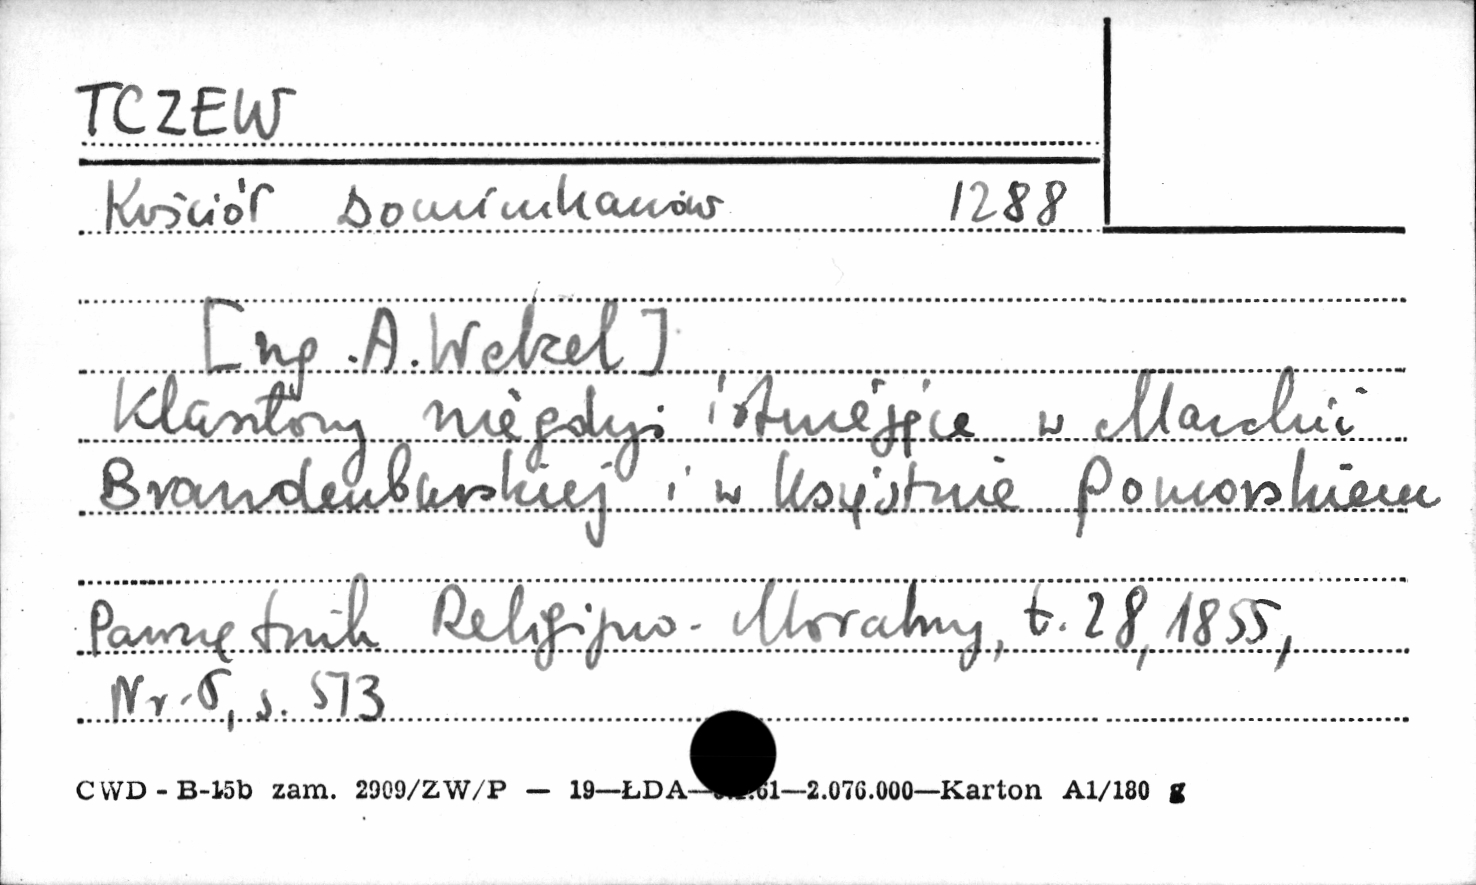 TCZEW
Kościół Dominikanów 1288
[wg. A. Wetzel]
Klasztory niegdyś istniejące w Marchii
Brandenburskiej i w Księstwie Pomorskiem
Pamiętnik Religijno-Moralny, t. 28, 1855,
Nr. 5, s. 513
CWD - B-15b zam. 2909/ZW/P — 19—ŁDA— 61—2.076.000—Karton A1/180 g